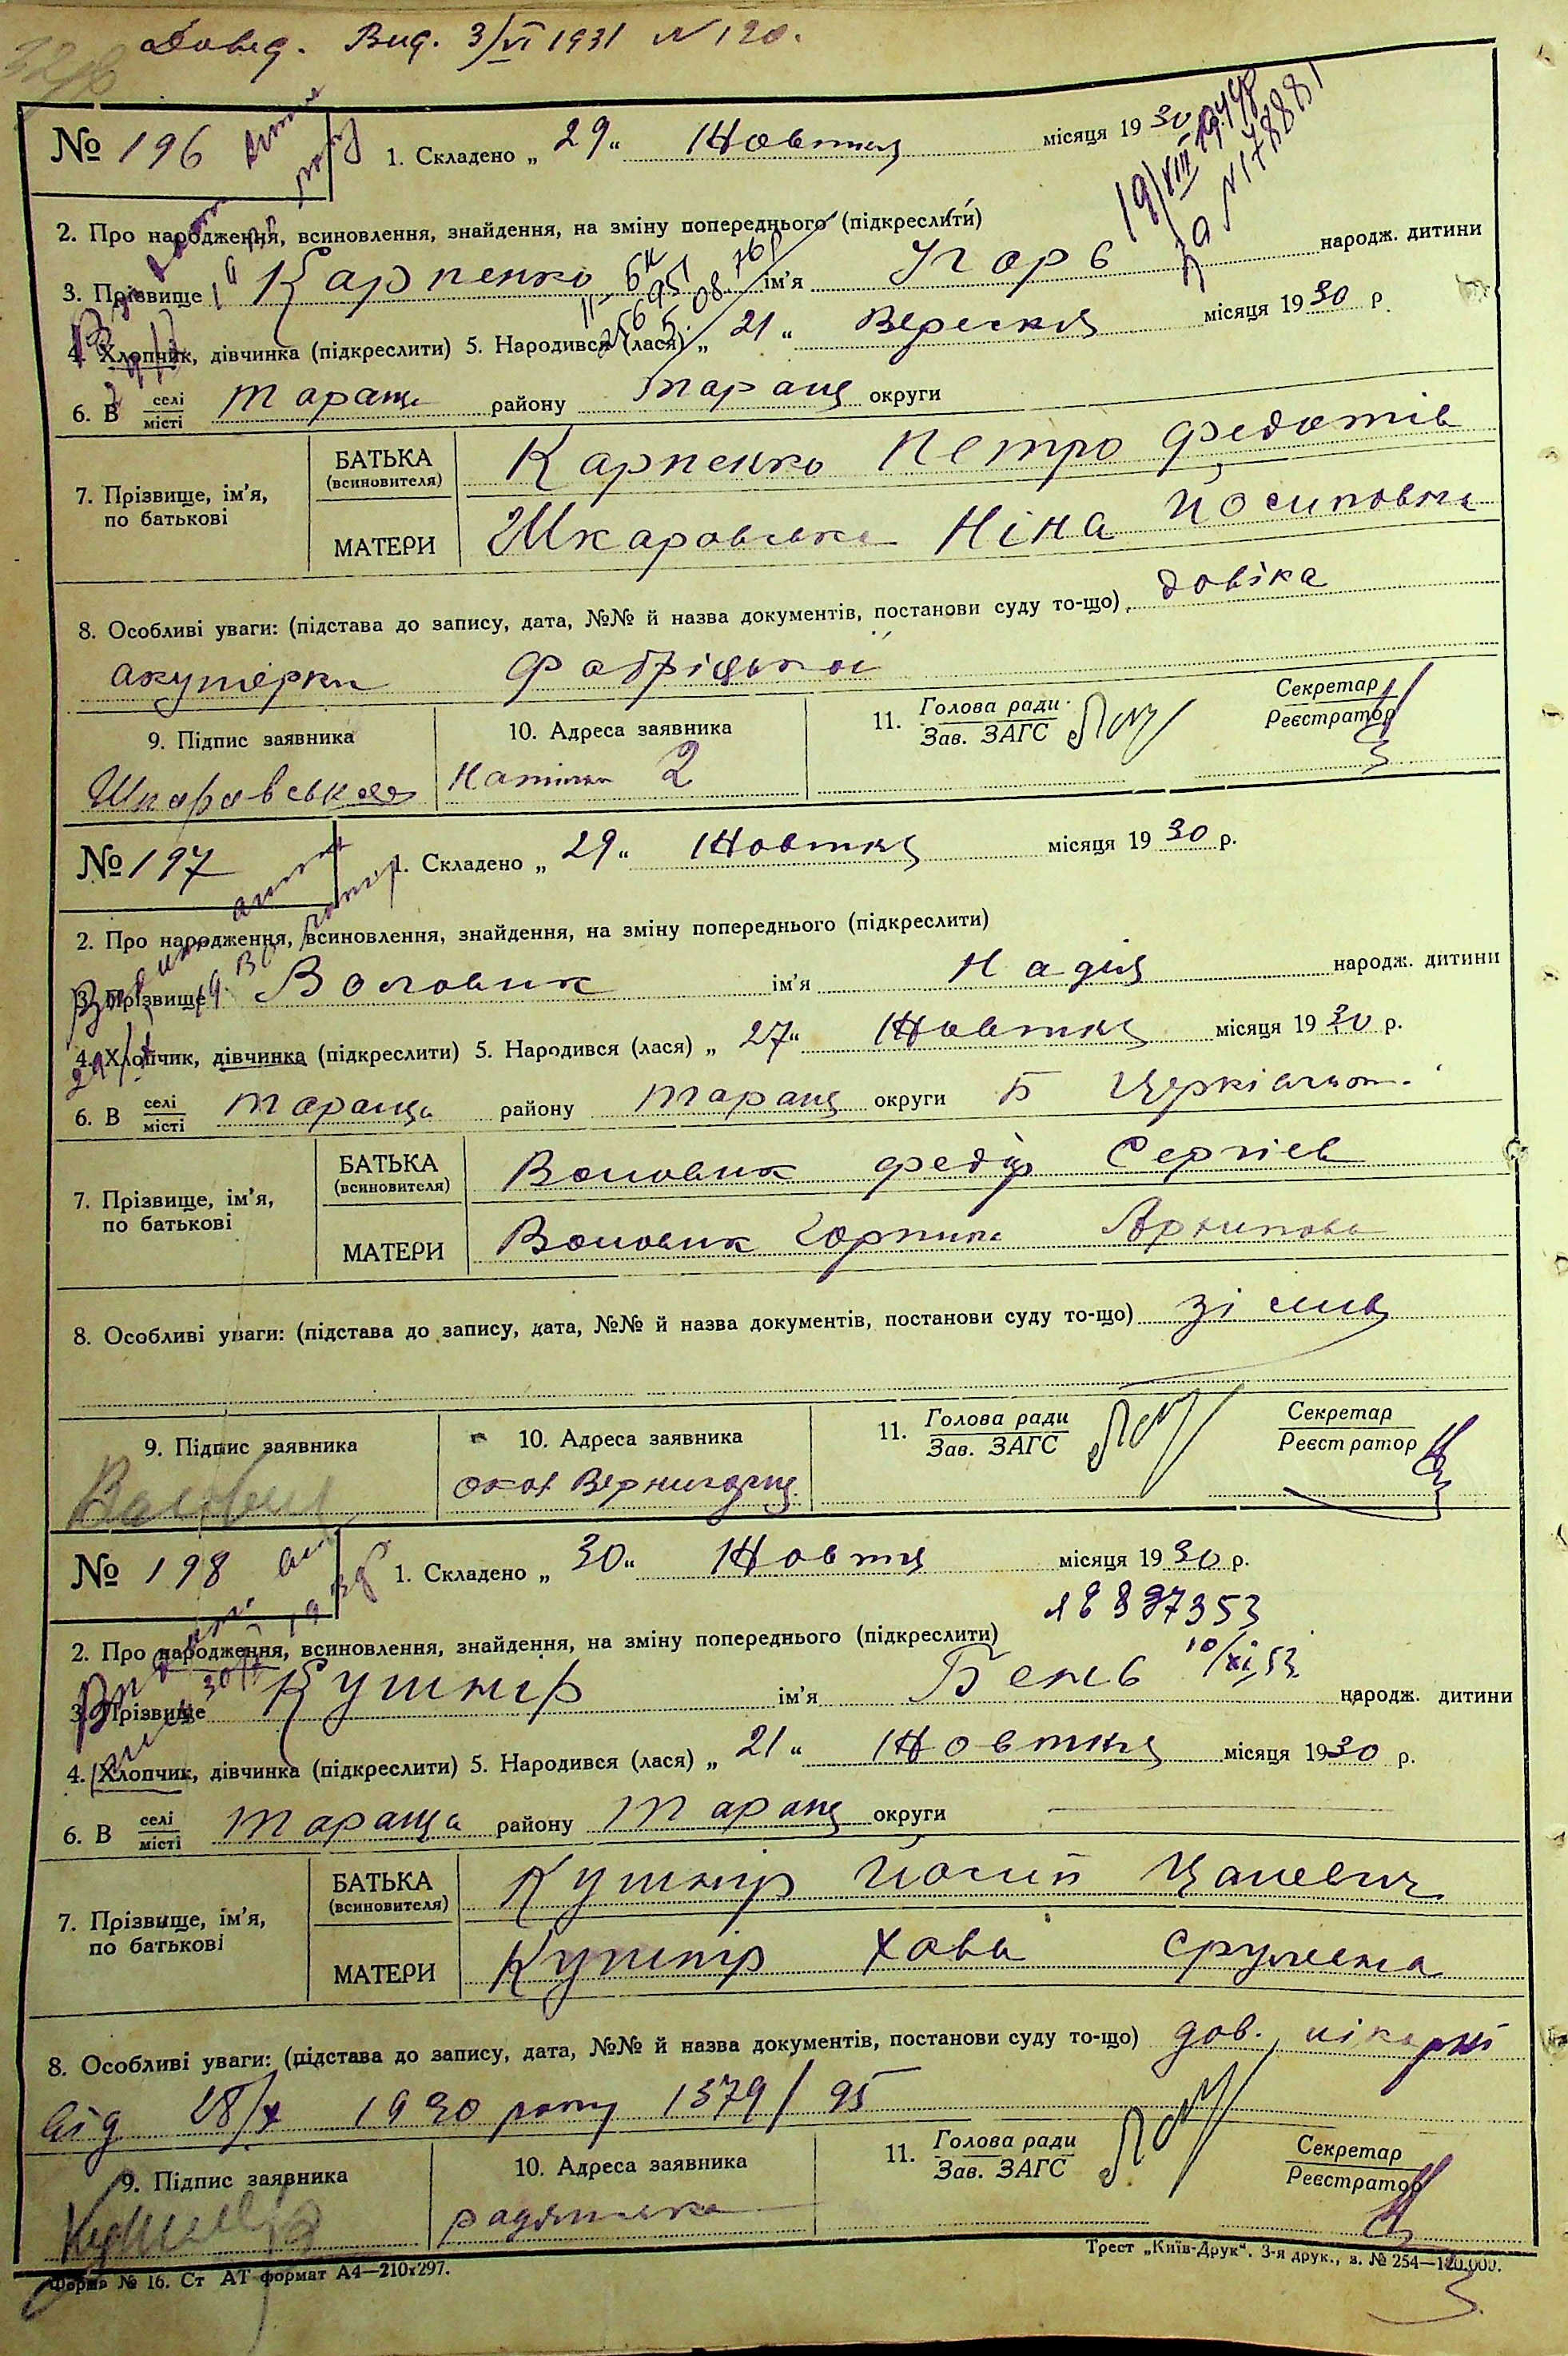 Довід. Вид. 3/VI 1931 N 120.
№ 196
1. Складено „ 29 “ Жовтня місяця 19 30
19/VIII 1948
за N 178881
2. Про народження, всиновлення, знайдення, на зміну попереднього (підкреслити)
3. Прізвище Карпенко ім’я Ігорь народж. дитини
4. Хлопчик, дівчинка (підкреслити) 5. Народився (лася) „ 21 “ Вересня місяця 19 30 р.
6. В селі/місті Тараща району Таращ округи
7. Прізвище, ім’я, по батькові
БАТЬКА (всиновителя) Карпенко Петро Федотів
МАТЕРИ Шкаровська Ніна Йосиповна
8. Особливі уваги: (підстава до запису, дата, №№ й назва документів, постанови суду то-що) довідка
акушерки
9. Підпис заявника 10. Адреса заявника 11. Голова ради/Зав. ЗАГС Секретар/Реєстратор
Шкаровськая 2
№ 197
1. Складено „ 29 “ Жовтня місяця 19 30 р.
2. Про народження, всиновлення, знайдення, на зміну попереднього (підкреслити)
3. Прізвище Воловик ім’я Надія народж. дитини
4. Хлопчик, дівчинка (підкреслити) 5. Народився (лася) „ 27 “ Жовтня місяця 19 30 р.
6. В селі/місті Тараща району Таращ округи Б Церківськ.
7. Прізвище, ім’я, по батькові
БАТЬКА (всиновителя) Воловик Федір Сергіев
МАТЕРИ Воловик Горпина Архипова
8. Особливі уваги: (підстава до запису, дата, №№ й назва документів, постанови суду то-що) зі слів
9. Підпис заявника 10. Адреса заявника 11. Голова ради/Зав. ЗАГС Секретар/Реєстратор
Воловик
№ 198
1. Складено „ 30 “ Жовтня місяця 19 30 р.
2. Про народження, всиновлення, знайдення, на зміну попереднього (підкреслити)
10/XI 53
3. Прізвище Кушнір ім’я Бень народж. дитини
4. Хлопчик, дівчинка (підкреслити) 5. Народився (лася) „ 21 “ Жовтня місяця 19 30 р.
6. В селі/місті Тараща району Таращ округи
7. Прізвище, ім’я, по батькові
БАТЬКА (всиновителя) Кушнір Йосип Цалевич
МАТЕРИ Кушнір Хава Срулевна
8. Особливі уваги: (підстава до запису, дата, №№ й назва документів, постанови суду то-що) дов. лікарні
від 28/X 1930 року 1379/95
9. Підпис заявника 10. Адреса заявника 11. Голова ради/Зав. ЗАГС Секретар/Реєстратор
Кушнір радянська
Форма № 16. Ст АТ формат А4—210х297.
Трест „Київ-Друк“. 3-я друк., з. № 254—120.000.